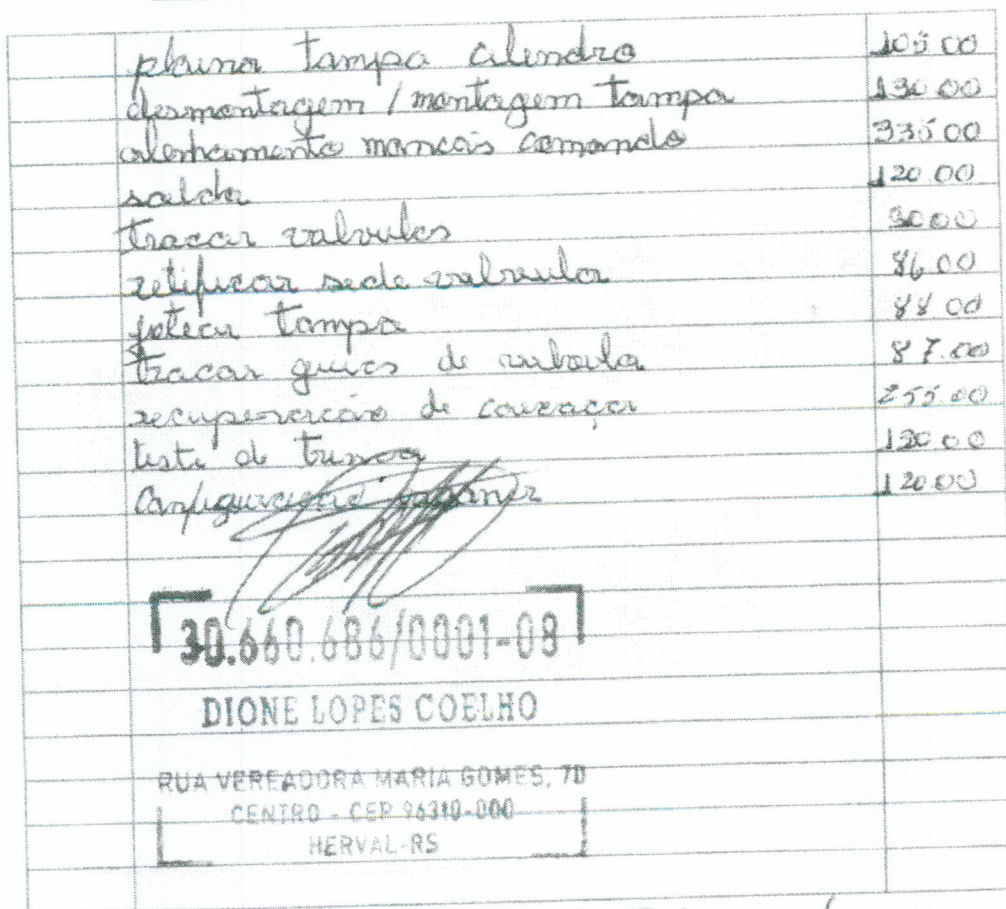 plaina tampa cilindro 105 00
desmontagem / montagem tampa 130 00
alenhamento mancais comando 335 00
solda 120 00
tracar valvulas 90 00
retificar sede valvula 86 00
jatear tampa 88 00
tracar guias de valvula 87.00
recuperacão de carcaça 255 00
teste de trinca
120.00
30.660.686/0001-08
DIONE LOPES COELHO
RUA VEREADORA MARIA GOMES, 70
CENTRO - CEP 96310-000
HERVAL-RS